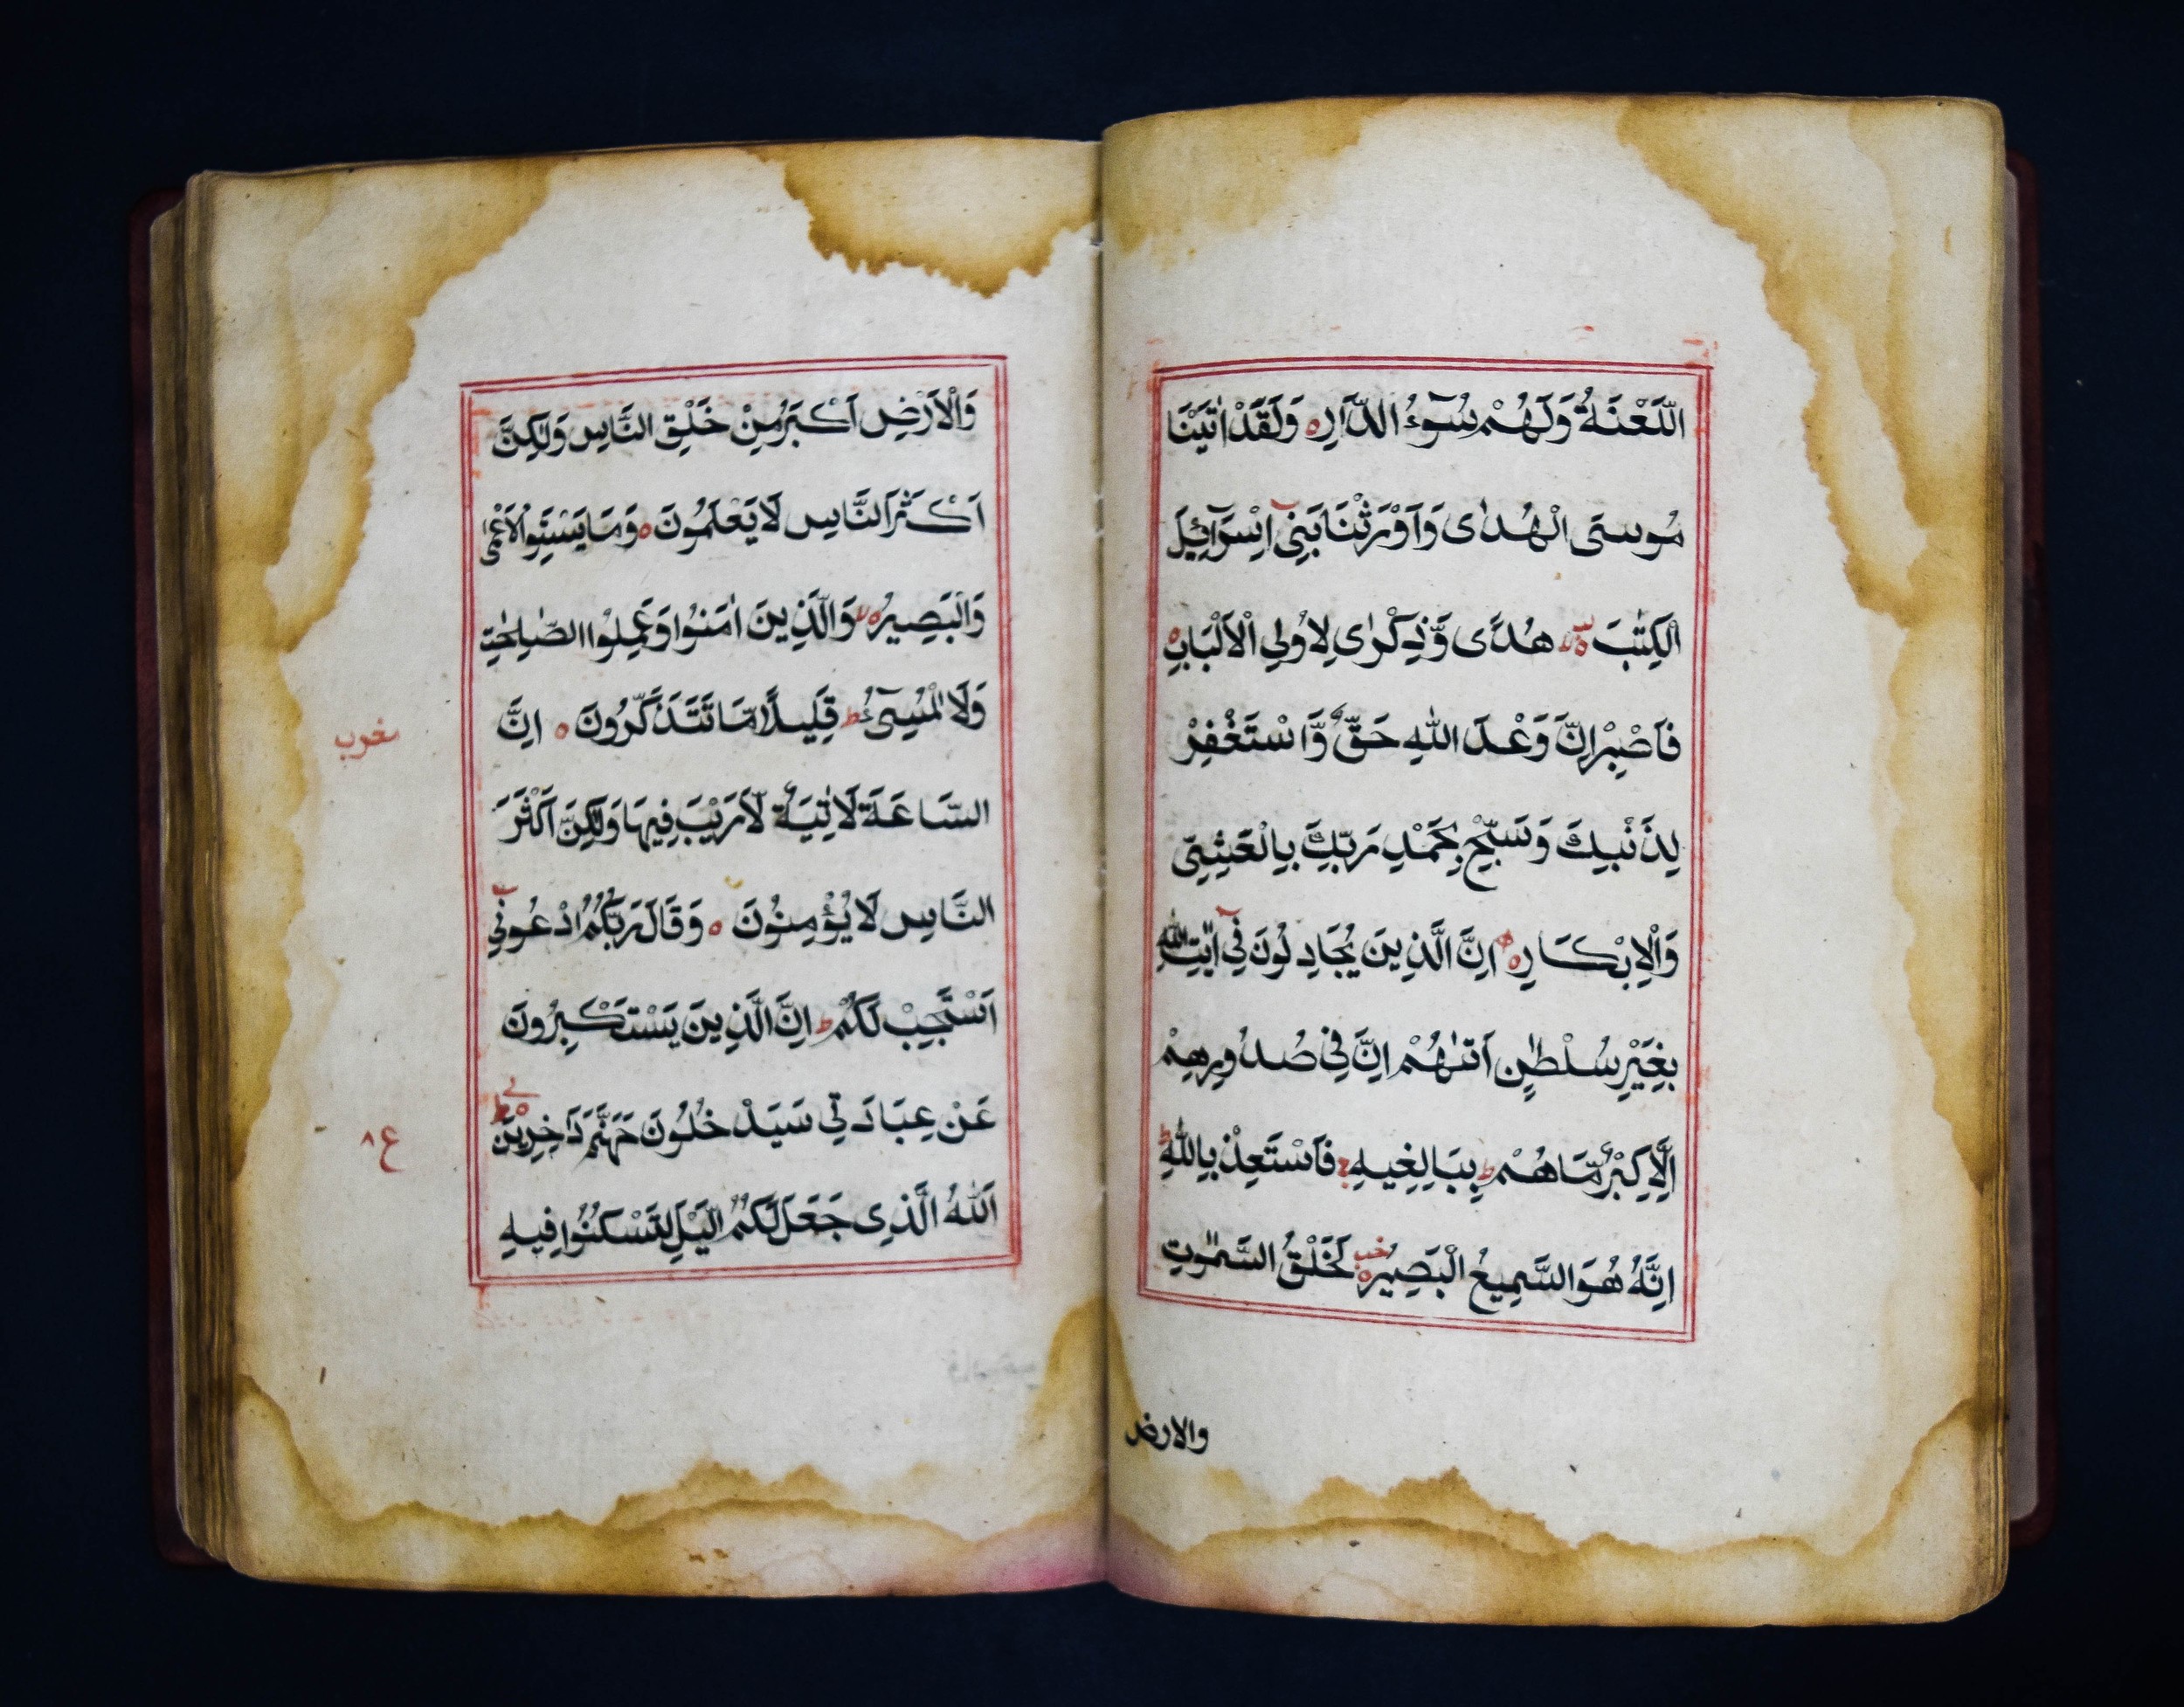 اللَّعْنَةُ وَلَهُمْ سُوٓءُ الدَّارِ ه وَلَقَدْ اٰتَيْنَا
مُوسَى الْهُدٰى وَاَوْرَثْنَا بَنِىٓ اِسْرَآئِيلَ
الْكِتٰبَ ه لا هُدًى وَّذِكْرٰى لِاُولِي الْاَلْبَابِ ه
فَاصْبِرْ اِنَّ وَعْدَ اللّٰهِ حَقٌّ وَّاسْتَغْفِرْ
لِذَنْبِكَ وَسَبِّحْ بِحَمْدِ رَبِّكَ بِالْعَشِيِّ
وَالْاِبْكَارِ ه اِنَّ الَّذِينَ يُجَادِلُونَ فِىٓ اٰيٰتِ اللّٰهِ
بِغَيْرِ سُلْطٰنٍ اَتٰىهُمْ اِنَّ فِى صُدُورِهِمْ
اِلَّا كِبْرٌ مَّا هُمْ ط بِبَالِغِيهِ ج فَاسْتَعِذْ بِاللّٰهِ ط
اِنَّهُ هُوَ السَّمِيعُ الْبَصِيرُ ه لَخَلْقُ السَّمٰوٰتِ
والارض
وَالْاَرْضِ اَكْبَرُ مِنْ خَلْقِ النَّاسِ وَلٰكِنَّ
اَكْثَرَ النَّاسِ لَا يَعْلَمُونَ ه وَمَا يَسْتَوِى الْاَعْمٰى
وَالْبَصِيرُ ه لا وَالَّذِينَ اٰمَنُوا وَعَمِلُوا الصّٰلِحٰتِ
وَلَا الْمُسِىٓءُ ط قَلِيلًا مَّا تَتَذَكَّرُونَ ه اِنَّ
السَّاعَةَ لَاٰتِيَةٌ لَّا رَيْبَ فِيهَا وَلٰكِنَّ اَكْثَرَ
النَّاسِ لَا يُؤْمِنُونَ ه وَقَالَ رَبُّكُمُ ادْعُونِىٓ
اَسْتَجِبْ لَكُمْ ط اِنَّ الَّذِينَ يَسْتَكْبِرُونَ
عَنْ عِبَادَتِى سَيَدْخُلُونَ جَهَنَّمَ دَاخِرِينَ
ع ٨
اَللّٰهُ الَّذِى جَعَلَ لَكُمُ الَّيْلَ لِتَسْكُنُوا فِيهِ